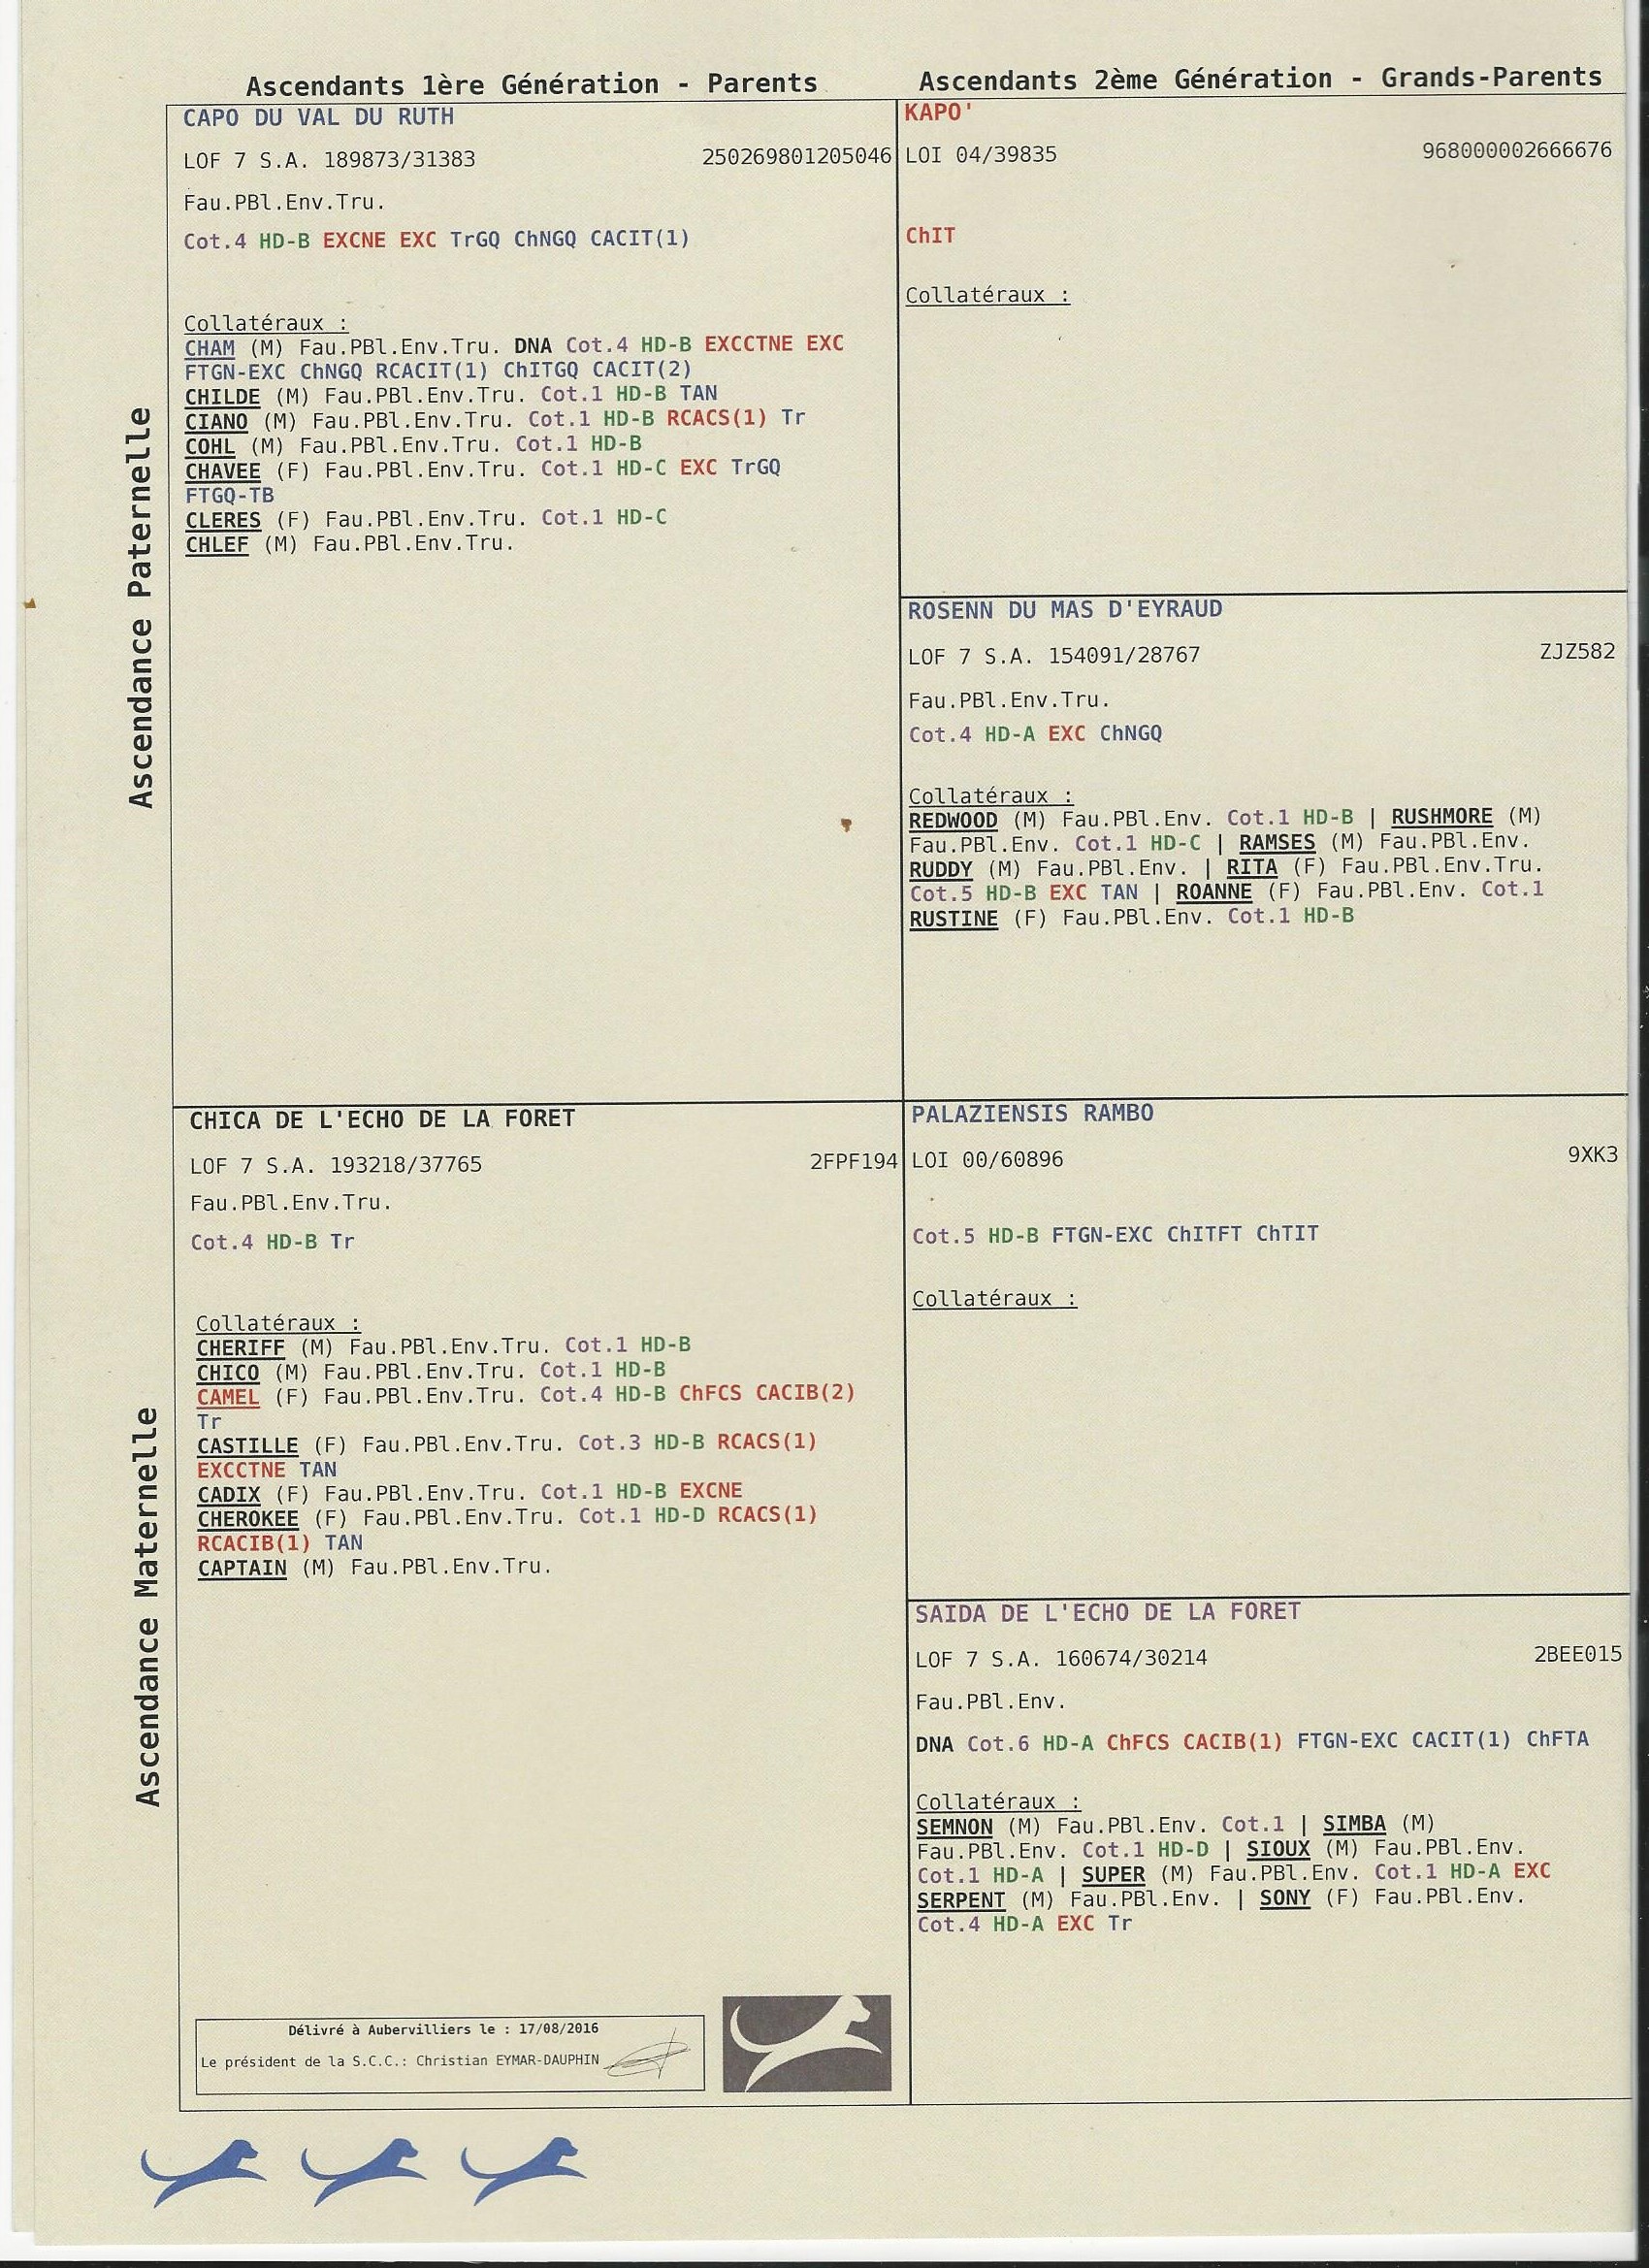 Ascendants 1ère Génération - Parents
Ascendants 2ème Génération - Grands-Parents
Ascendance Paternelle
CAPO DU VAL DU RUTH
LOF 7 S.A. 189873/31383 250269801205046
Fau.PBl.Env.Tru.
Cot.4 HD-B EXCNE EXC TrGQ ChNGQ CACIT(1)
Collatéraux :
CHAM (M) Fau.PBl.Env.Tru. DNA Cot.4 HD-B EXCCTNE EXC
FTGN-EXC ChNGQ RCACIT(1) ChITGQ CACIT(2)
CHILDE (M) Fau.PBl.Env.Tru. Cot.1 HD-B TAN
CIANO (M) Fau.PBl.Env.Tru. Cot.1 HD-B RCACS(1) Tr
COHL (M) Fau.PBl.Env.Tru. Cot.1 HD-B
CHAVEE (F) Fau.PBl.Env.Tru. Cot.1 HD-C EXC TrGQ
FTGQ-TB
CLERES (F) Fau.PBl.Env.Tru. Cot.1 HD-C
CHLEF (M) Fau.PBl.Env.Tru.
KAPO'
LOI 04/39835 968000002666676
ChIT
Collatéraux :
ROSENN DU MAS D'EYRAUD
LOF 7 S.A. 154091/28767 ZJZ582
Fau.PBl.Env.Tru.
Cot.4 HD-A EXC ChNGQ
Collatéraux :
REDWOOD (M) Fau.PBl.Env. Cot.1 HD-B | RUSHMORE (M)
Fau.PBl.Env. Cot.1 HD-C | RAMSES (M) Fau.PBl.Env.
RUDDY (M) Fau.PBl.Env. | RITA (F) Fau.PBl.Env.Tru.
Cot.5 HD-B EXC TAN | ROANNE (F) Fau.PBl.Env. Cot.1
RUSTINE (F) Fau.PBl.Env. Cot.1 HD-B
Ascendance Maternelle
CHICA DE L'ECHO DE LA FORET
LOF 7 S.A. 193218/37765 2FPF194
Fau.PBl.Env.Tru.
Cot.4 HD-B Tr
Collatéraux :
CHERIFF (M) Fau.PBl.Env.Tru. Cot.1 HD-B
CHICO (M) Fau.PBl.Env.Tru. Cot.1 HD-B
CAMEL (F) Fau.PBl.Env.Tru. Cot.4 HD-B ChFCS CACIB(2)
Tr
CASTILLE (F) Fau.PBl.Env.Tru. Cot.3 HD-B RCACS(1)
EXCCTNE TAN
CADIX (F) Fau.PBl.Env.Tru. Cot.1 HD-B EXCNE
CHEROKEE (F) Fau.PBl.Env.Tru. Cot.1 HD-D RCACS(1)
RCACIB(1) TAN
CAPTAIN (M) Fau.PBl.Env.Tru.
PALAZIENSIS RAMBO
LOI 00/60896 9XK3
Cot.5 HD-B FTGN-EXC ChITFT ChTIT
Collatéraux :
SAIDA DE L'ECHO DE LA FORET
LOF 7 S.A. 160674/30214 2BEE015
Fau.PBl.Env.
DNA Cot.6 HD-A ChFCS CACIB(1) FTGN-EXC CACIT(1) ChFTA
Collatéraux :
SEMNON (M) Fau.PBl.Env. Cot.1 | SIMBA (M)
Fau.PBl.Env. Cot.1 HD-D | SIOUX (M) Fau.PBl.Env.
Cot.1 HD-A | SUPER (M) Fau.PBl.Env. Cot.1 HD-A EXC
SERPENT (M) Fau.PBl.Env. | SONY (F) Fau.PBl.Env.
Cot.4 HD-A EXC Tr
Délivré à Aubervilliers le : 17/08/2016
Le président de la S.C.C.: Christian EYMAR-DAUPHIN